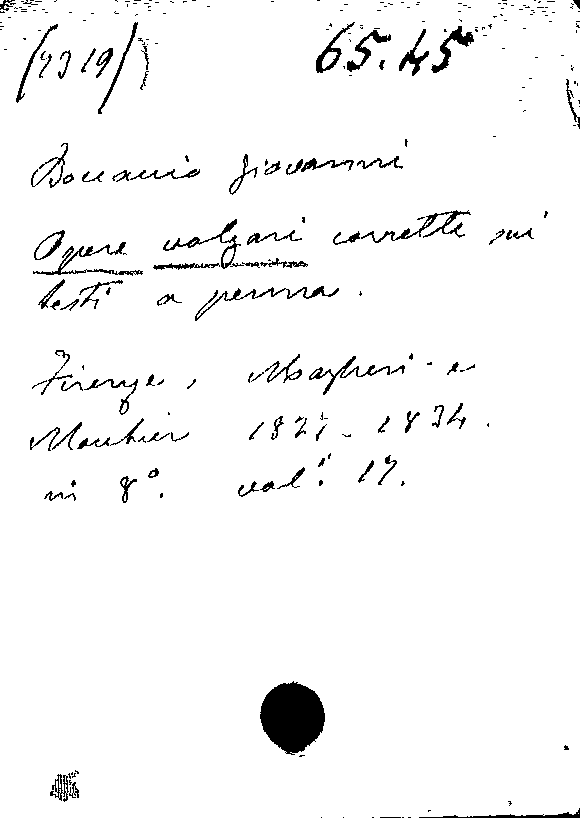 (7319)
65.45
Boccaccio Giovanni
Opere volgari corrette sui
testi a penna.
Firenze, Magheri e
Moutier 1827-1834.
in 8°. voli. 17.